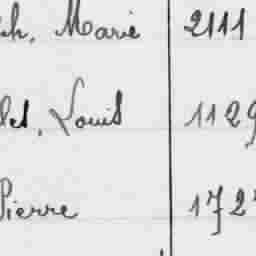 ch, Marie 2111
let, Louis 1129
Pierre 172